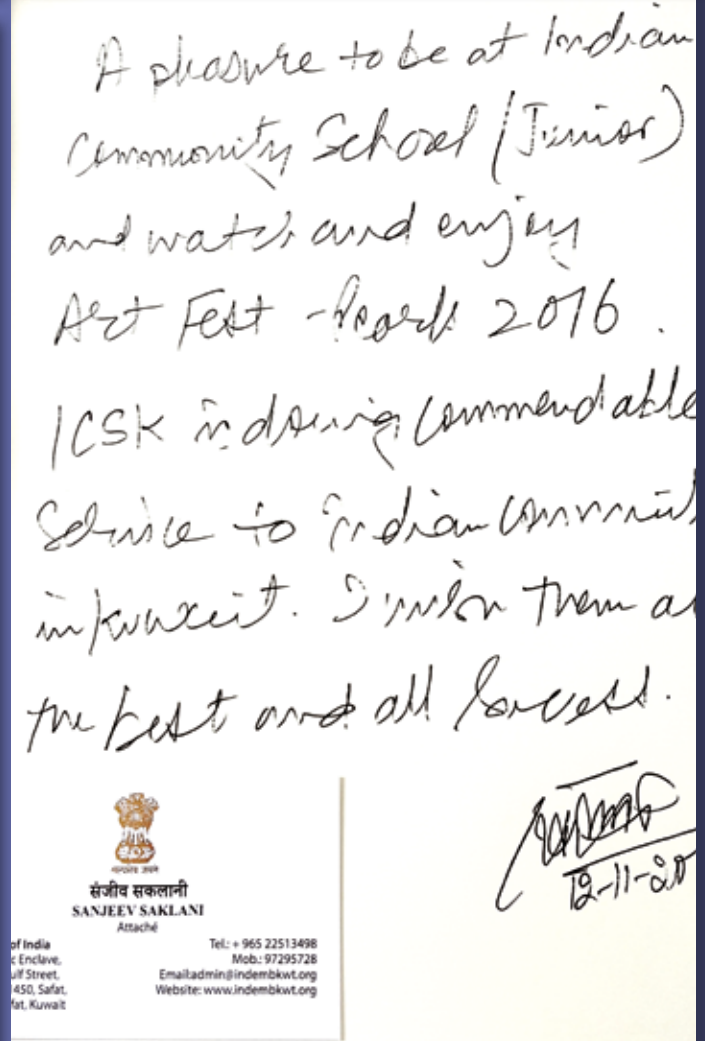 A pleasure to be at Indian
Community School (Junior)
and watch and enjoy
Art Fest - 2016.
ICSK is doing commendable
Service to Indian communit
in Kuwait. I wish them a
the best and all success.
12-11-20
सत्यमेव जयते
संजीव सकलानी
SANJEEV SAKLANI
Attaché
of India
c Enclave,
ulf Street,
450, Safat,
fat, Kuwait
Tel.: + 965 22513498
Mob.: 97295728
Email:admin@indembkwt.org
Website: www.indembkwt.org